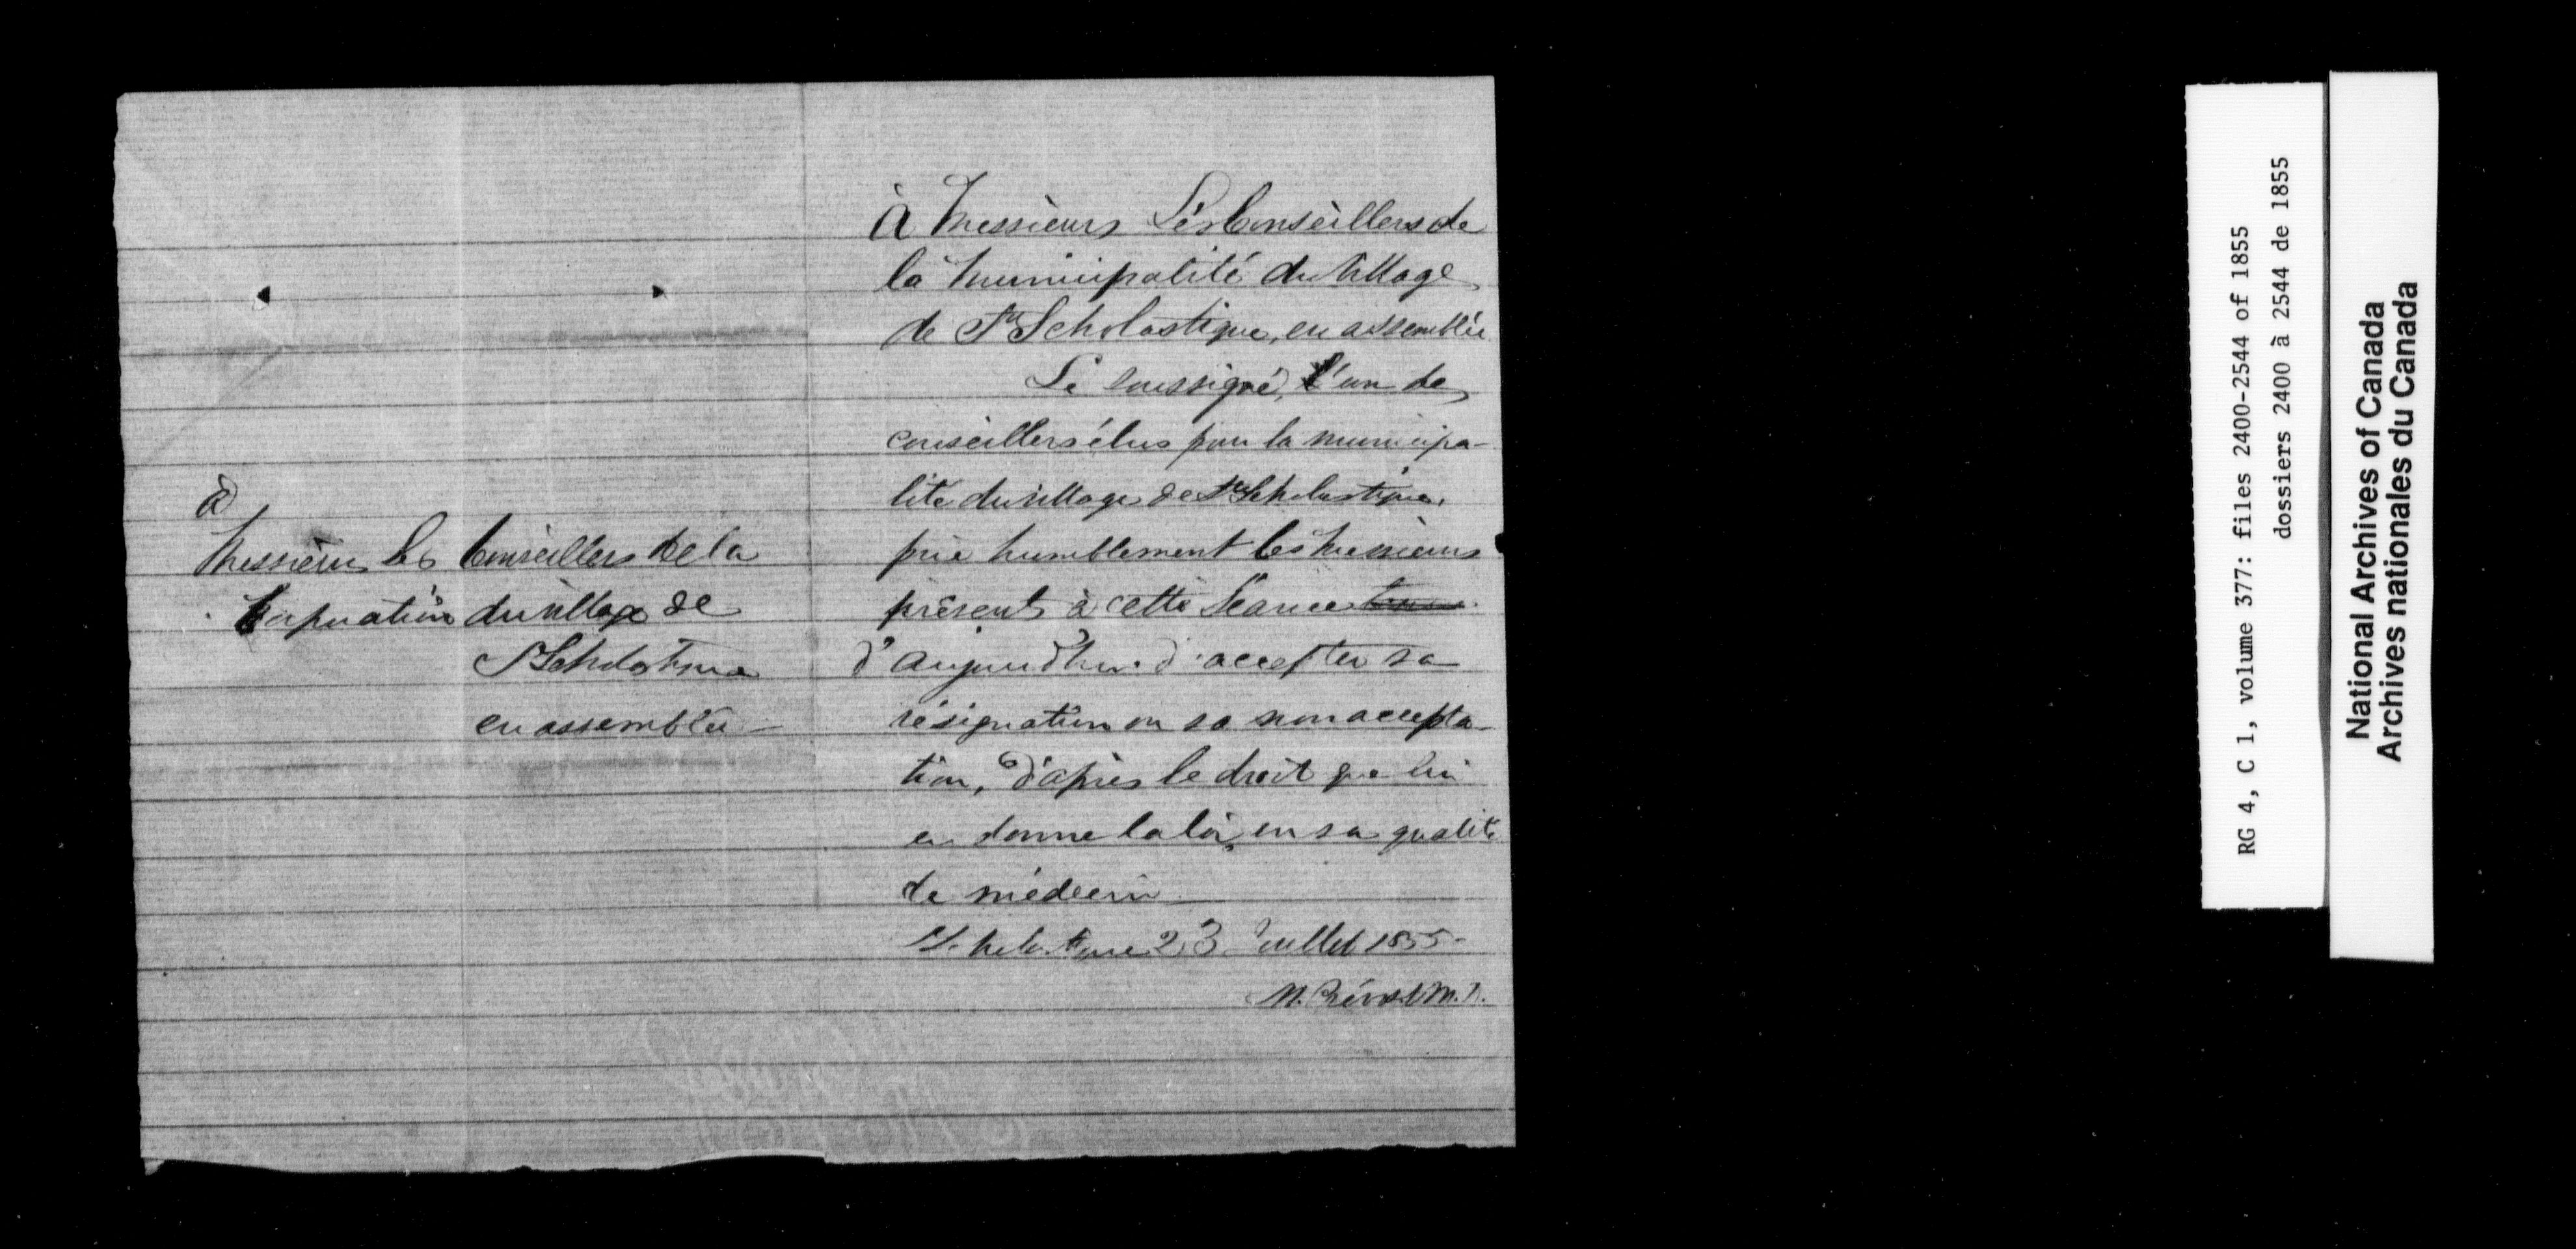 à Messieurs Les Conseillers de
la Municipalité du Village
de Ste Scholastique, en assemblée
Le soussigné, l'un des
conseillers élus pour la municipa-
lité du village de Ste Scholastique,
prie humblement les Messieurs
présents à cette Séance
d'aujourd'hui d'accepter sa
résignation ou sa non accepta-
tion, d'après le droit que lui
en donne la loi, en sa qualité
de médecin
Scholastique 23 Juillet 1855
M. Prévost M.D.
à
Messieurs les Conseillers de la
Corporation du village de
Scholastique
en assemblée
RG 4, C 1, volume 377: files 2400-2544 of 1855
dossiers 2400 à 2544 de 1855
National Archives of Canada
Archives nationales du Canada